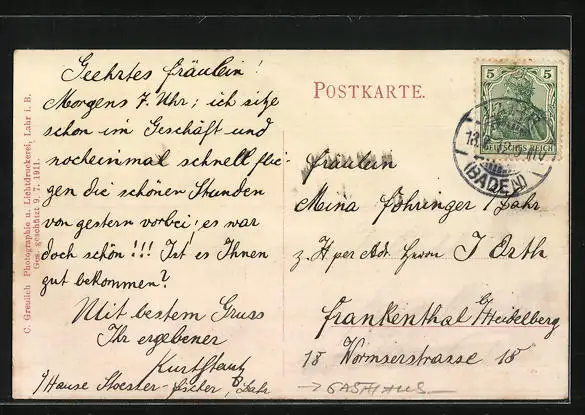 Geehrtes Fräulein!
Morgens 7. Uhr; ich sitze
schon im Geschäft und
nocheinmal schnell flie-
gen die schönen Stunden
von gestern vorbei; es war
doch schön!!! Ist es Ihnen
gut bekommen?
Mit bestem Gruss
Ihr ergebener
Kurt
i/Hause Stoesser-Fischer, Lahr
C. Greulich Photographie u. Lichtdruckerei, Lahr i. B.
Ges. geschützt 9. 7. 1911.
POSTKARTE.
5 5
DEUTSCHES REICH
(BADEN)
Fräulein
Mina Föhringer / Lahr
z. H per Adr. Herrn J Orth
Frankenthal b/Heidelberg
18 Wormserstrasse 18
→ GASTHAUS